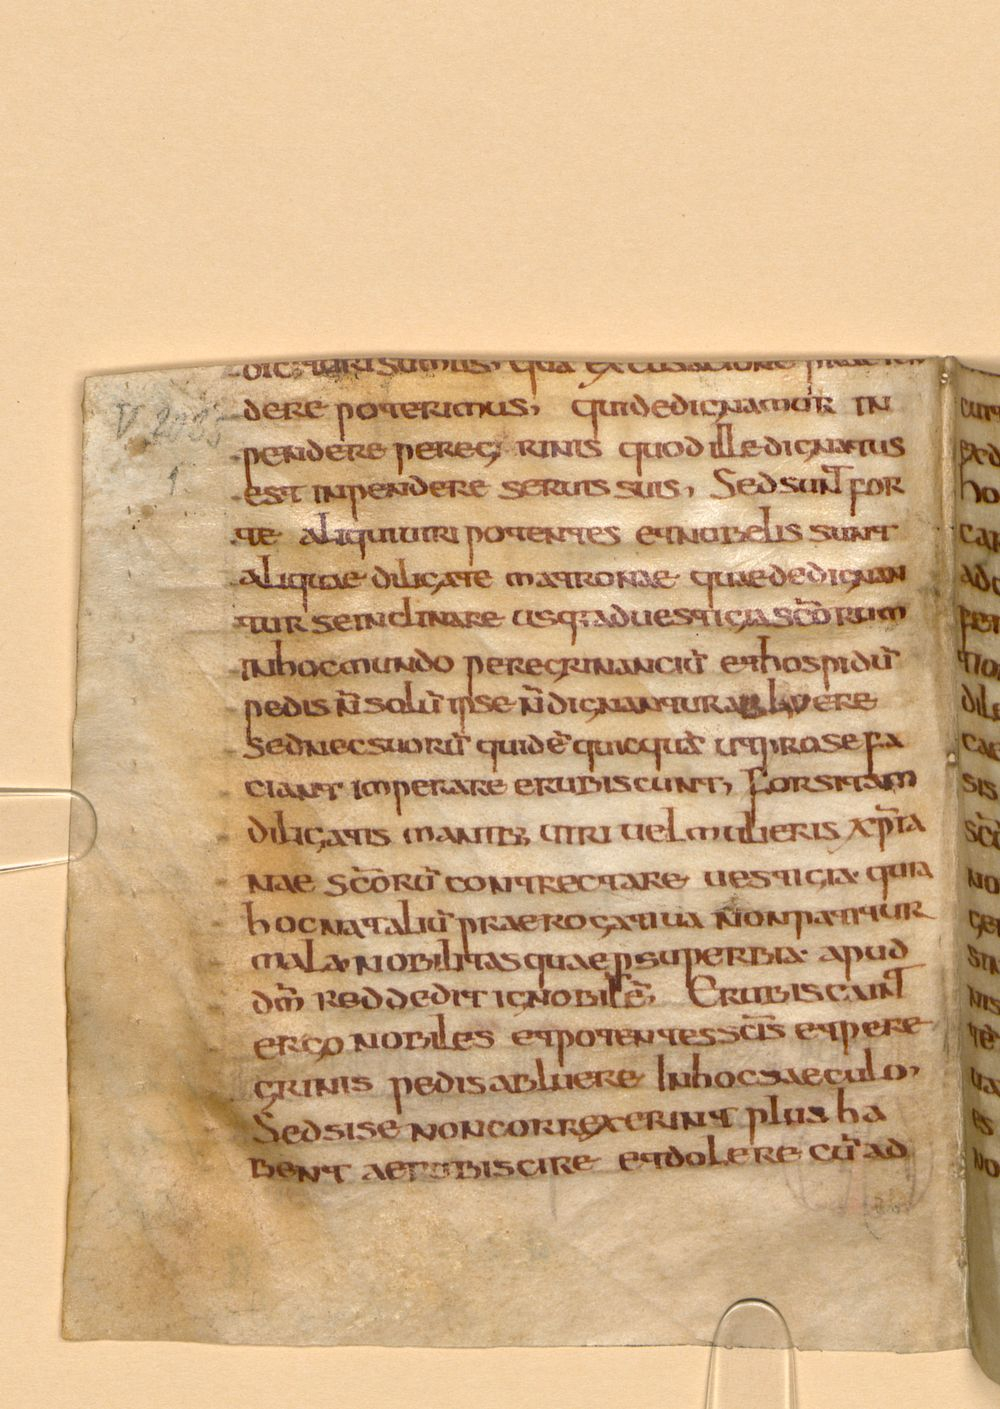 dicturi sumus, qua excusatione praeten
dere poterimus, qui dedignamur in
pendere peregrinis quod ille dignatus
est inpendere seruis suis, Sed sunt for
te aliqui uiri potentes et nobelis sunt
aliquae diligate matronae quae dedignan
tur se inclinare usq; ad uestigia sc̄orum
in hoc mundo peregrinanciū et hospidū
pedis n̄ solū ipse n̄ dignantur abluere
sed nec suorū quidē quicquā ut pro se fa
ciant imperare erubiscunt, Forsitam
diligatis manib; uiri uel mulieris xp̄ia
nae sc̄orū contrectare uestigia quia
hoc nataliū praerogatiua non patitur
mala nobilitas quae p superbia apud
dm̄ se reddedit ignobilē, Erubiscant
ergo nobiles et potentes sc̄is et pere
grinis pedis abluere In hoc saeculo,
Sed si se non correxerint plus ha
bent aerubiscire et dolere cū ad
V 2085
1